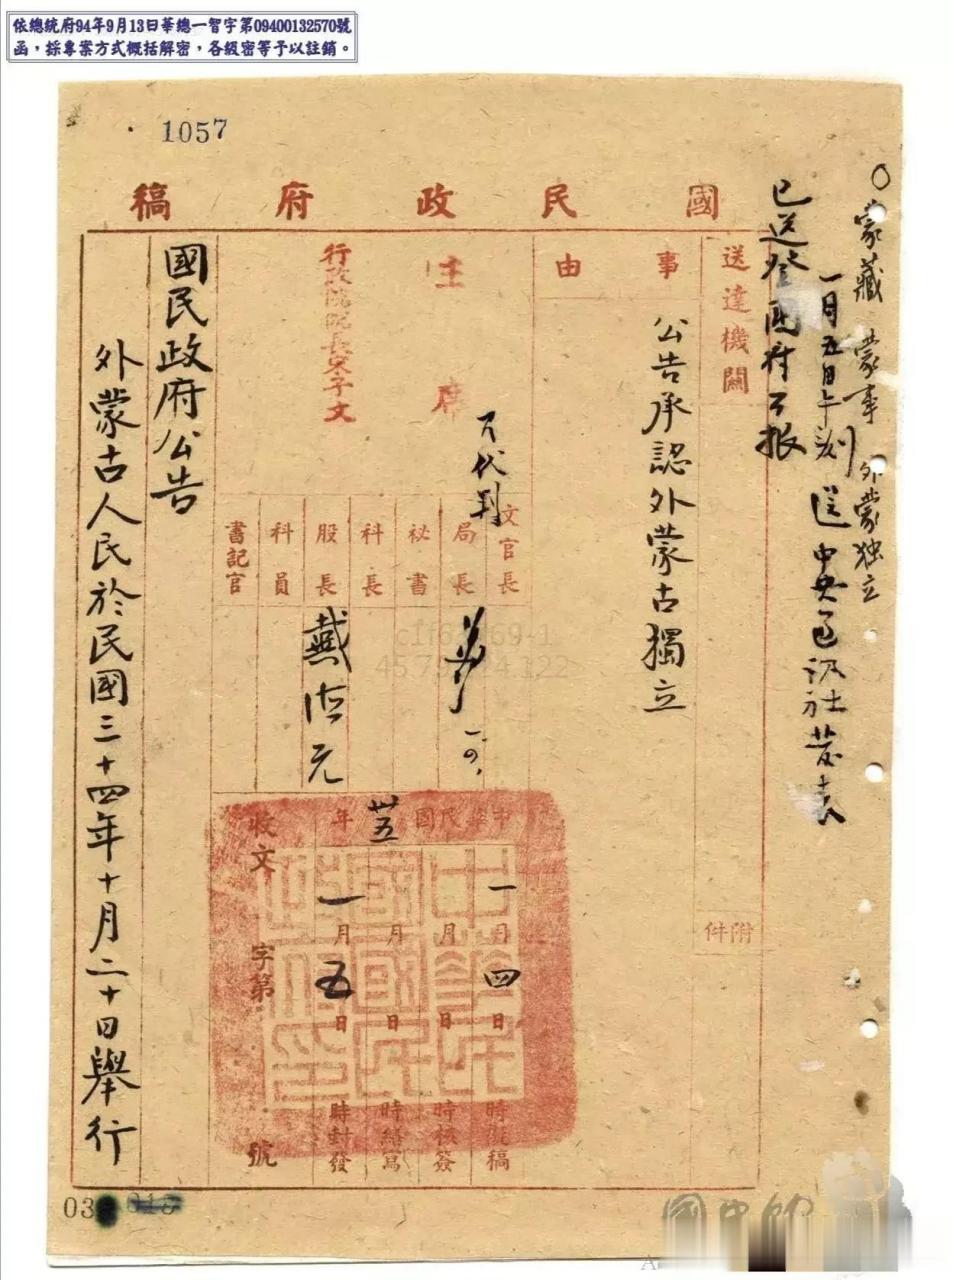 依總統府94年9月13日華總一智字第09400132570號
函，採專案方式概括解密，各級密等予以註銷。
1057
國民政府稿
蒙藏 蒙事 外蒙独立
一月五日午刻送中央通訊社發表
已送登國府公报
送達機關
附件
事由
公告承認外蒙古獨立
主席
代判
行政院院長宋子文
文官長
局長
一、四、
祕書
科長
股長
戴
元
科員
書記官
中華民國卅五年
一月四日 時擬稿
月 日 時核簽
月 日 時繕寫
一月五日 時封發
收文 字第 號
中華民國國民政府印
國民政府公告
外蒙古人民於民國三十四年十月二十日舉行
03
015